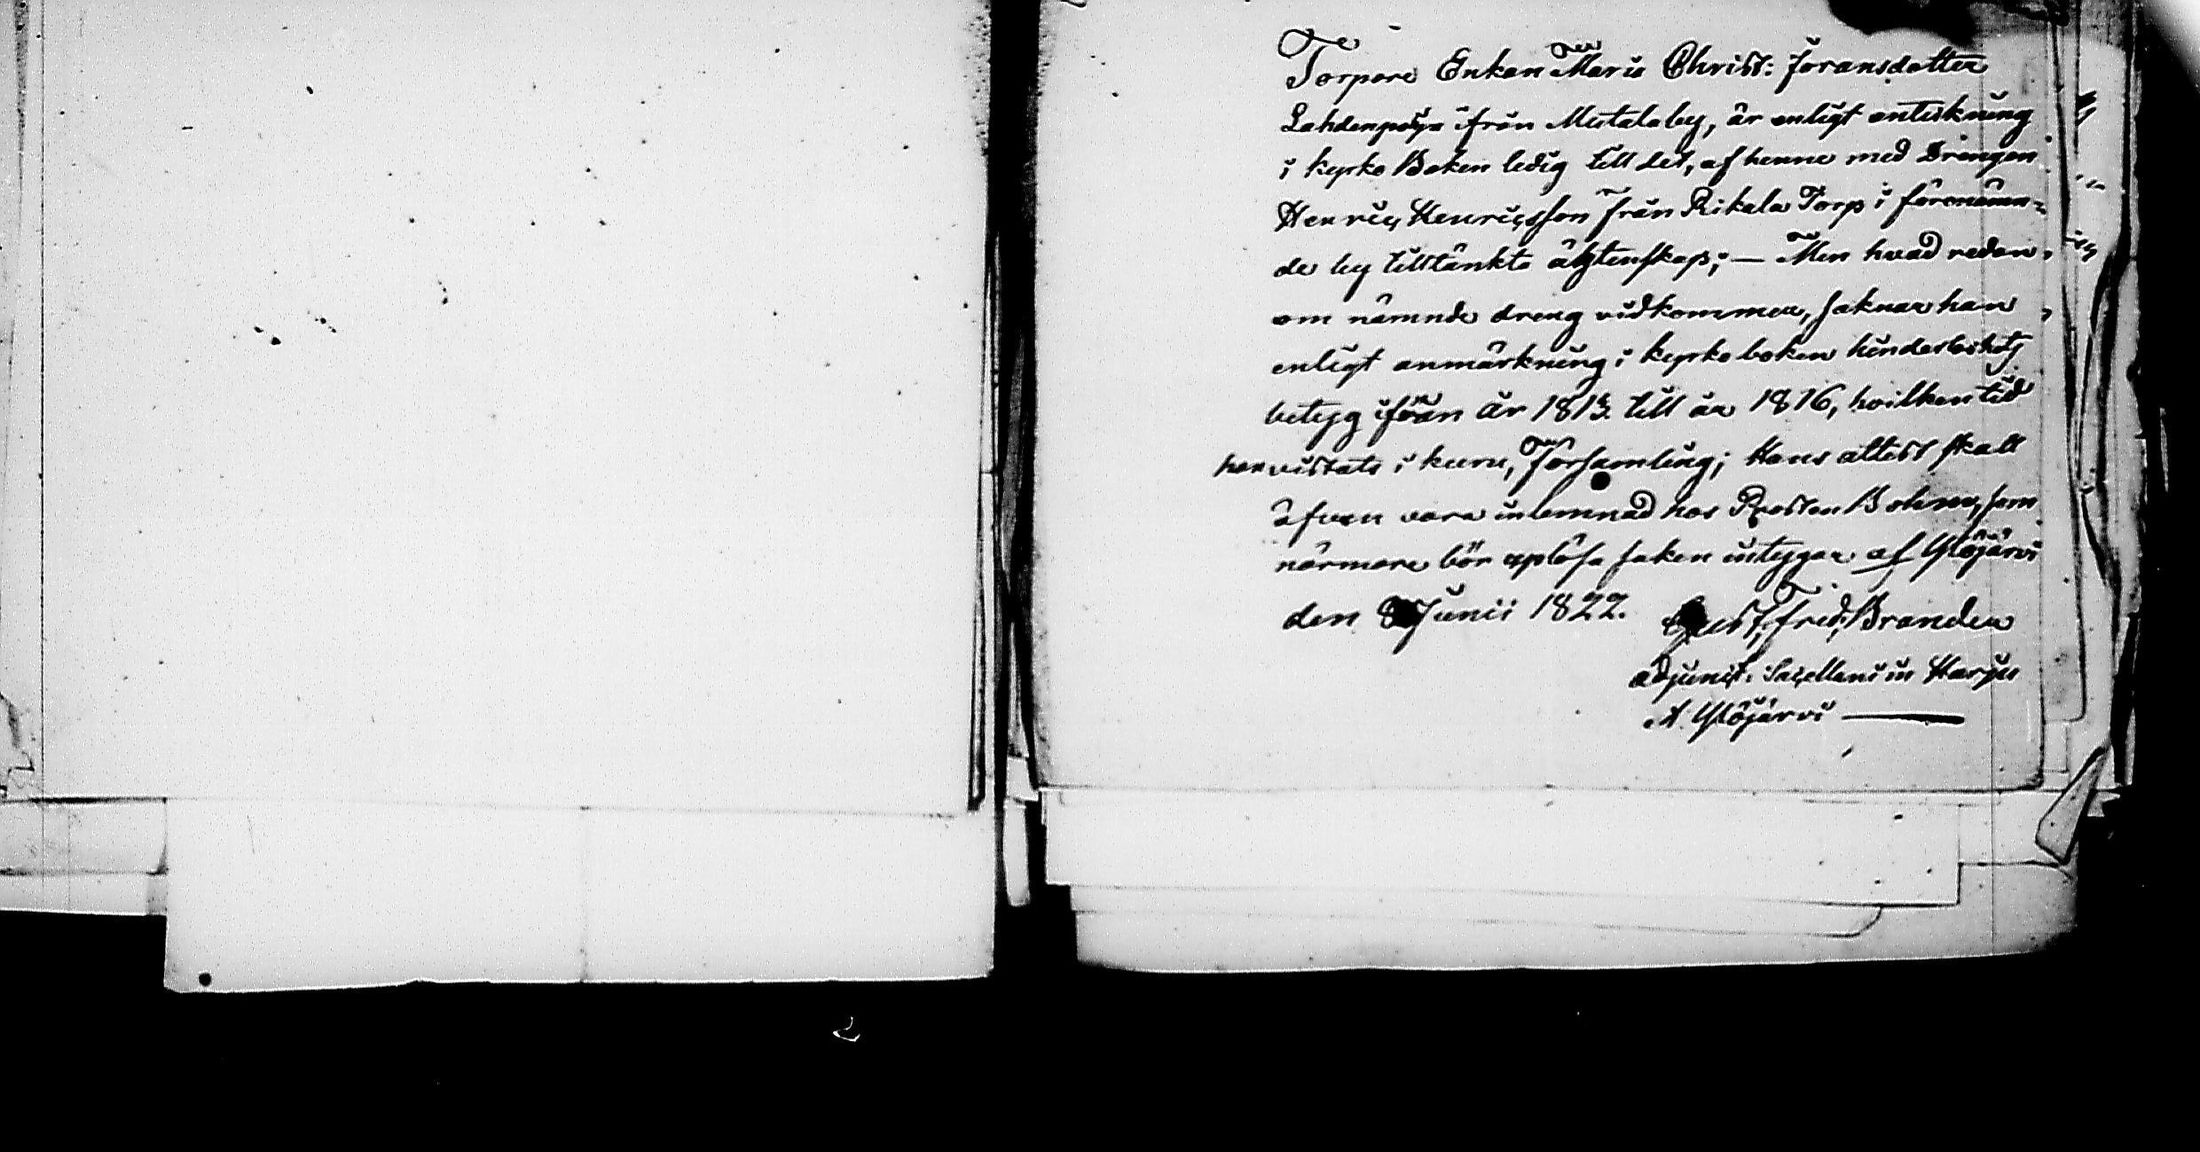 Torpare Enkan Maria Christ: Joransdotter
Lahdenpohja ifrån Mutalaby, är enligt antekning
i kyrko Boken ledig till det, af henne med Drengen
Henric Henricsson från Rikala Torp i förenämn=
de by tilltänkta ägtenskap; — Men hvad redan
om nämnde dreng vidkommer, saknar han
enligt anmärkning i kyrko boken hinderslöshets
betyg ifrån år 1813 till år 1816, hvilken tid
han vistats i kuru, Församling; Hans attest skall
äfven vara inlemnad hos Prosten, som
närmare bör uplösa saken intygar af Ylöjärvi
den 8 Junii 1822.
Gust. Fred. Brander
adjunct. Sacellani in Harju
& Ylöjärvi —